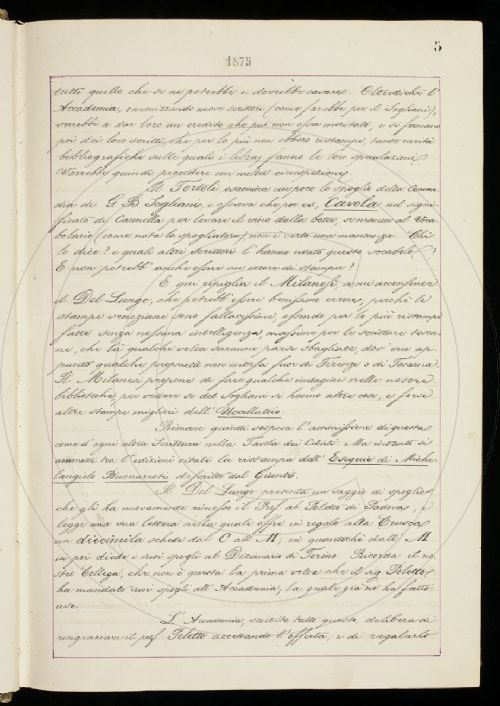 5
1875
tutto quello che se ne potrebbe e dovrebbe cavare. Oltredichè l'
Accademia, canonizzando nuovi scrittori (come farebbe per il Sogliani),
verrebbe a dar loro un credito che può non essa meritato, e si formano
poi dei loro scritti, che per lo più non ebbero ristampe, tante rarità
bibliografiche sulle quali i librai fanno le loro speculazioni.
Vorrebbe quindi procedere con molta circospezione.
Il Tortoli esamina un poco lo spoglio della Comme-
dia di G. B. Sogliani, e osserva che per es. Cavola, nel signi-
ficato di Cannella per levare il vino dalla botte, se manca al Voca-
bolario (come nota lo spogliatore), non è certo una mancanza. Chi
lo dice? e quali altri Scrittori l'hanno usato questo vocabolo?
E non potrebb' anche essere un errore di stampa?
E qui ripiglia il Milanesi, a cui acconsente
il Del Lungo, che potrebb' essere benissimo errore, perchè le
stampe veneziane sono fallacissime, essendo per lo più ristampe
fatte senza nessuna intelligenza, massime per li scrittori tosca-
ni, che là qualche volta saranno parsi sbagliati dov' era ap-
punto qualche proprietà non intesa fuor di Firenze o di Toscana.
Il Milanesi propone di fare qualche indagine nelle nostre
biblioteche, per vedere se del Sogliani se hanno altre cose, e forse
altre stampe migliori dell' Uccellatoio.
Rimane quindi sospesa l'ammissione di questa
come d'ogni altra Scrittura nella Tavola dei Citati. Ma intanto si
ammette tra l'edizioni citate la ristampa dell' Esequie di Miche-
langiolo Buonarroti descritte dal Giunti.
Il Del Lungo presenta un saggio di spoglio
che gli ha nuovamente rimesso il Prof. ab. Poletto di Padova, e
legge una sua lettera nella quale offre in regalo alla Crusca
un diecimila schede dal C all' M, in quantochè dall' M
in poi diede i suoi spogli al Dizionario di Torino. Ricorda il no-
stro Collega, che non è questa la prima volta che il sig. Poletto
ha mandato suoi spogli all' Accademia, la quale già ne ha fatto
uso.
L'Accademia, sentito tutto questo, delibera di
ringraziare il prof. Poletto accettando l'offerta, e di regalarlo